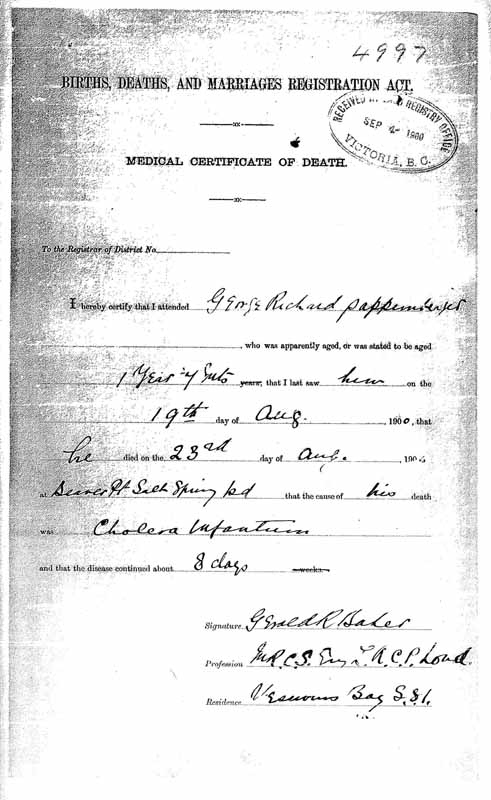 4997
BIRTHS, DEATHS, AND MARRIAGES REGISTRATION ACT.
RECEIVED REGISTRY OFFICE
SEP 4 - 1900
VICTORIA, B. C.
MEDICAL CERTIFICATE OF DEATH.
To the Registrar of District No.
I hereby certify that I attended George Richard
, who was apparently aged, or was stated to be aged
1 Year years, that I last saw him on the
19th day of Aug. 1900, that
he died on the 23rd day of Aug. , 190
at Beaver Pt Salt Spring Isd that the cause of his death
was Cholera Infantum
and that the disease continued about 8 days weeks.
Signature Gerald R Baker
Profession M.R.C.S. Eng L.R.C.P. Lond.
Residence Vesuvius Bay S.S.I.